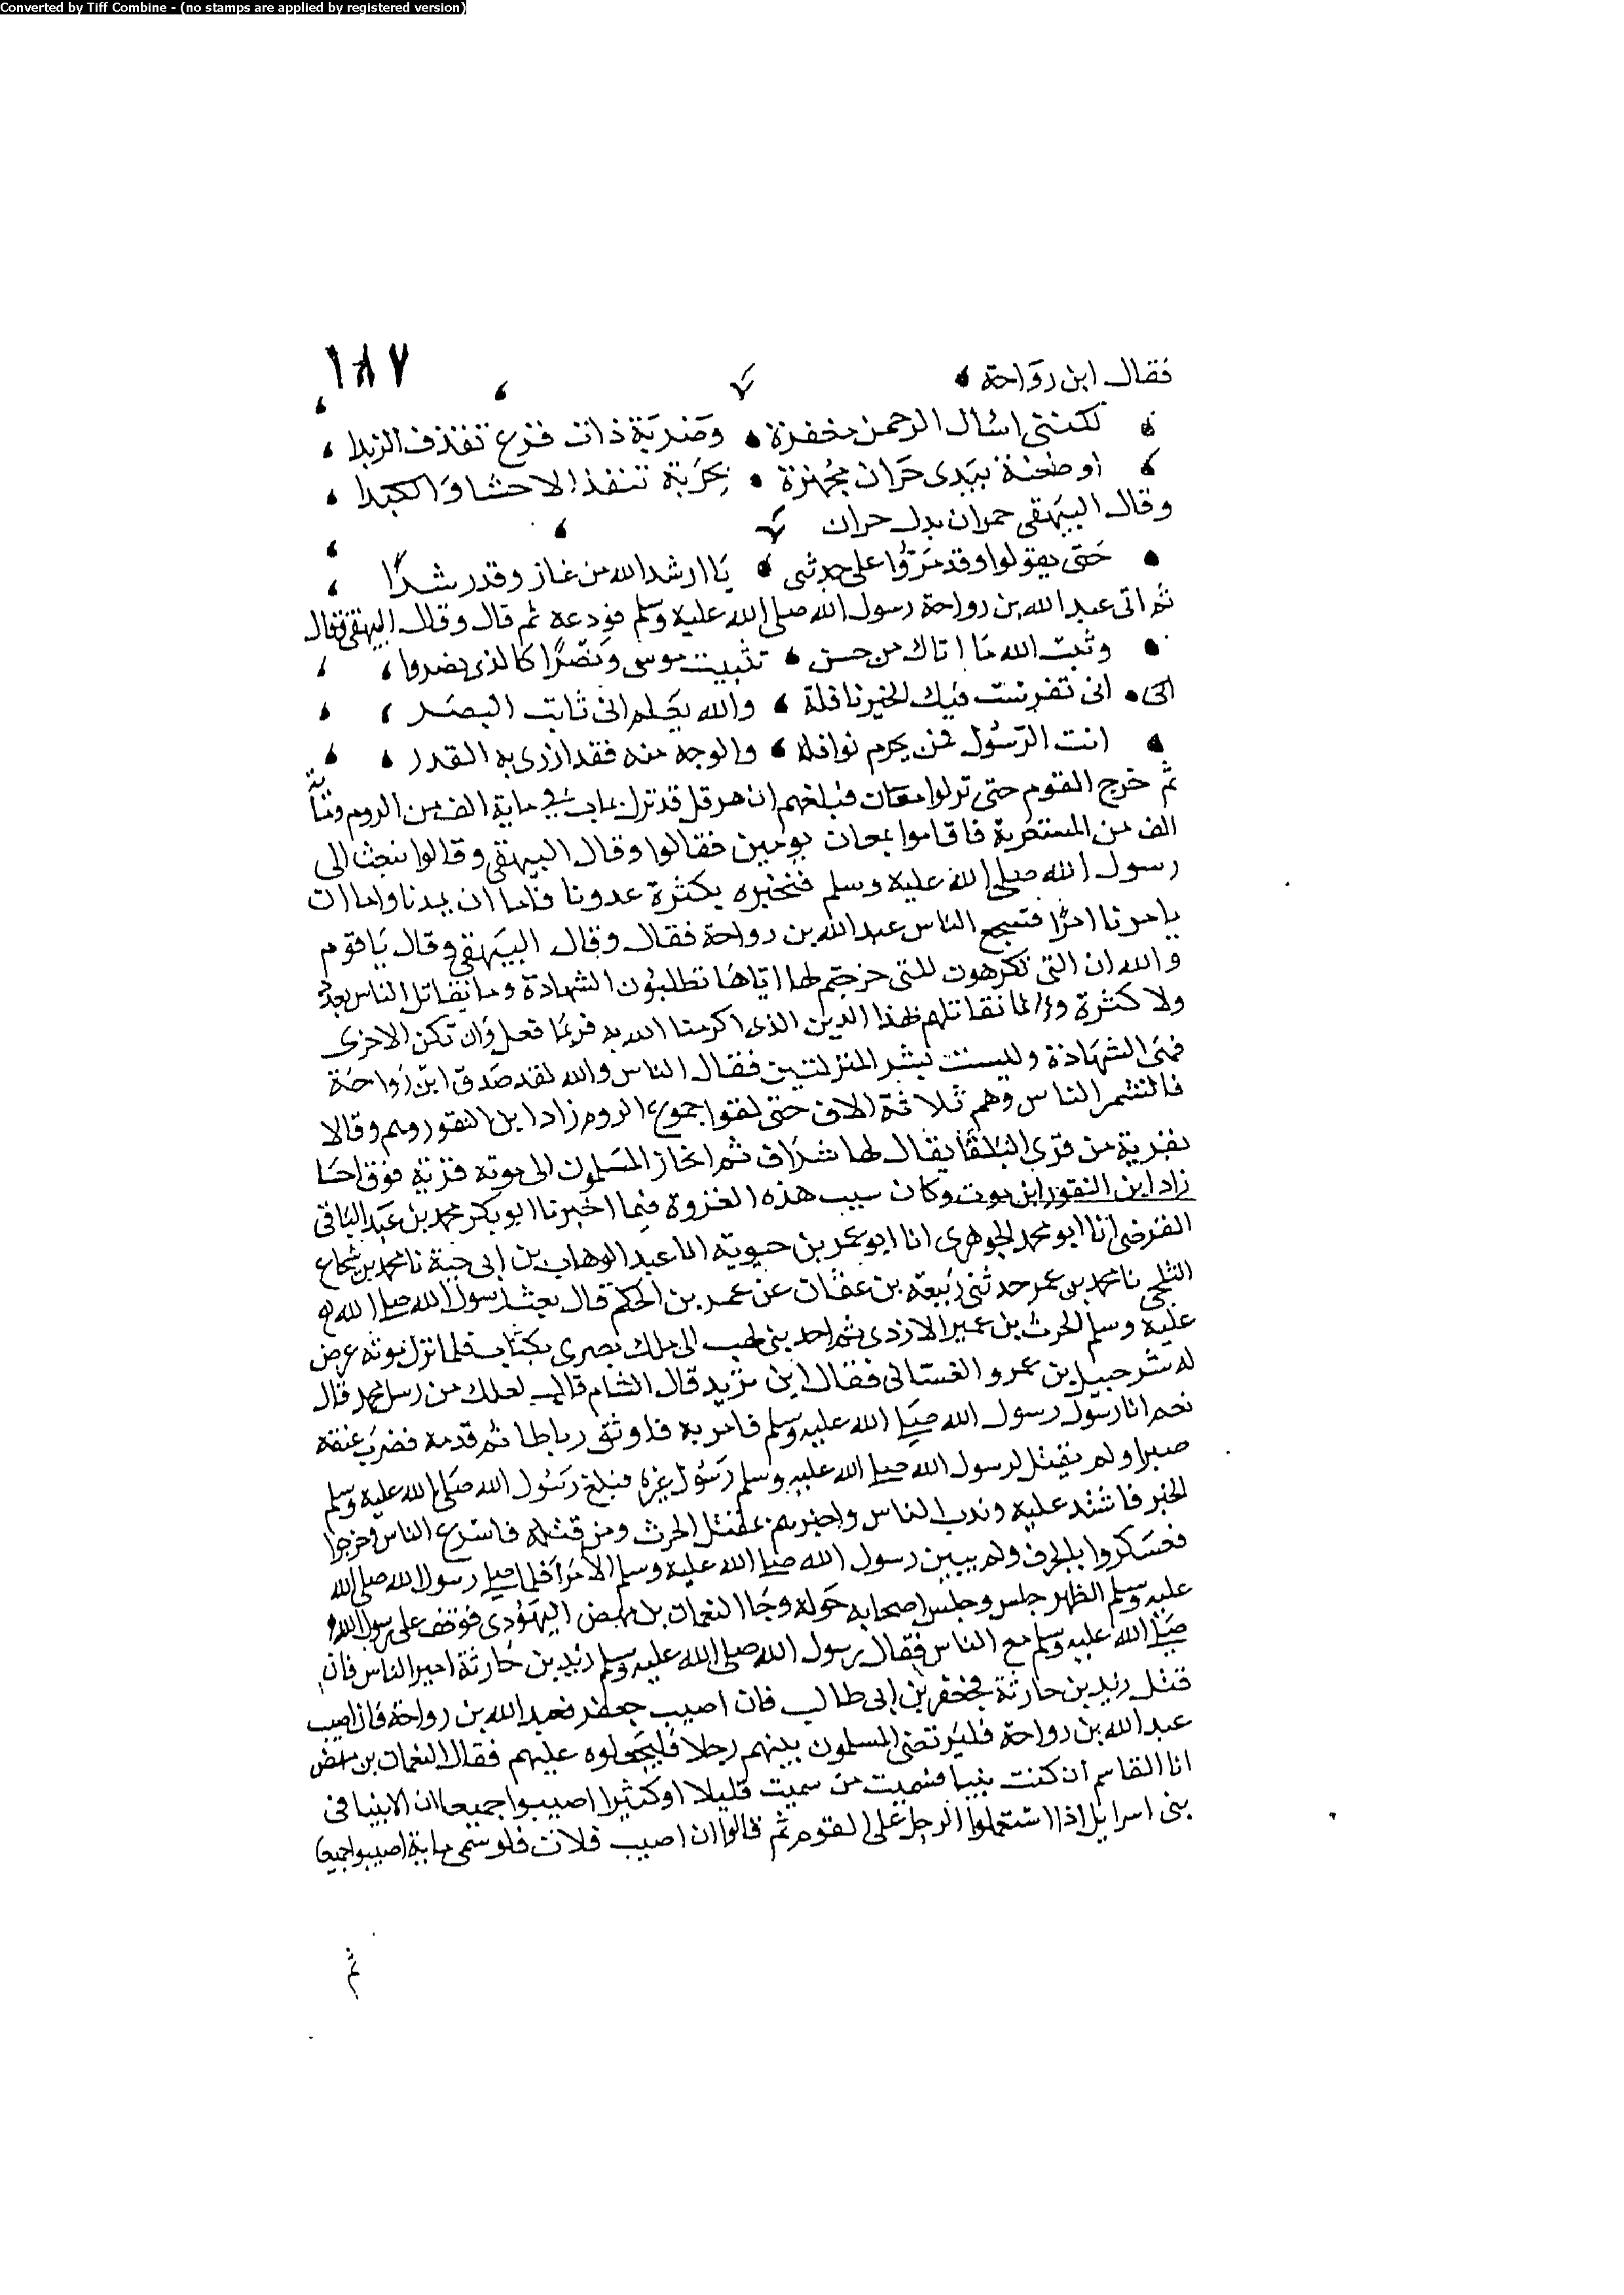 Converted by Tiff Combine - (no stamps are applied by registered version)
١٨٧
فقال ابن رواحة
لكننى اسال الرحمن مغفرة وضربة ذات فرع تقذف الزبدا
او طعنة بيدى حران مجهزة بحربة تنفذ الاحشا والكبدا
وقال البيهقى حمران بدل حران
حتى يقولوا وقد مروا على جدثى يا ارشد الله من غاز وقد رشدا
ثم اتى عبد الله بن رواحة رسول الله صلى الله عليه وسلم فودعه ثم قال وقال البيهقى فقال
وثبت الله ما اتاك من حسن تثبيت موسى ونصرا كالذى نصروا
انى تفرست فيك الخير نافلة والله يعلم انى ثابت البصر
انت الرسول فمن يحرم نوافله والوجه منه فقد ازرى به القدر
ثم خرج القوم حتى نزلوا معان فبلغهم ان هرقل قد نزل بماب فى ماية الف من الروم وماية
الف من المستعربة فاقاموا بمعان يومين فقالوا وقال البيهقى وقالوا نبعث الى
رسول الله صلى الله عليه وسلم فنخبره بكثرة عدونا فاما ان يمدنا واما ان
يامرنا امرا فشجع الناس عبد الله بن رواحة فقال وقال البيهقى وقال يا قوم
والله ان التى تكرهون للتى خرجتم لها اياها تطلبون الشهادة وما نقاتل الناس بعدد
ولا كثرة وانما نقاتلهم بهذا الدين الذى اكرمنا الله به فربما فعل وان تكن الاخرى
فهى الشهادة وليست بشر المنزلتين فقال الناس والله لقد صدق ابن رواحة
فانشمر الناس وهم ثلاثة الاف حتى لقوا جموع الروم زاد ابن النقور وهم وقالا
بقرية من قرى البلقا يقال لها شراف ثم انحاز المسلمون الى موته قرية فوق احسا
زاد ابن النقور ابن موت وكان سبب هذه الغزوة فيما اخبرنا ابو بكر محمد بن عبد الباقى
الفرضى انا ابو محمد الجوهرى انا ابو عمر بن حيويه انا عبد الوهاب بن ابى حية نا محمد بن شجاع
الثلجى نا محمد بن عمر حدثنى ربيعة بن عثمان عن عمر بن الحكم قال بعث رسول الله صلى الله
عليه وسلم الحرث بن عمير الازدى ثم احد بنى لهب الى ملك بصرى بكتاب فلما نزل موته عرض
له شرحبيل بن عمرو الغسانى فقال اين تريد قال الشام قال لعلك من رسل محمد قال
نعم انا رسول رسول الله صلى الله عليه وسلم فامر به فاوثق رباطا ثم قدمه فضرب عنقه
صبرا ولم يقتل لرسول الله صلى الله عليه وسلم رسول غيره فبلغ رسول الله صلى الله عليه وسلم
الخبر فاشتد عليه وندب الناس واخبرهم بمقتل الحرث ومن قتله فاسرع الناس وخرجوا
فعسكروا بالجرف ولم يبين رسول الله صلى الله عليه وسلم الامر فلما صلى رسول الله صلى الله
عليه وسلم الظهر جلس وجلس اصحابه حوله وجا النعمان بن مهض اليهودى فوقف على رسول الله
صلى الله عليه وسلم مع الناس فقال رسول الله صلى الله عليه وسلم زيد بن حارثة امير الناس فان
قتل زيد بن حارثة فجعفر بن ابى طالب فان اصيب جعفر فعبد الله بن رواحة فان اصيب
عبد الله بن رواحة فليرتضى المسلمون بينهم رجلا فليجعلوه عليهم فقال النعمان بن مهض
ابا القاسم ان كنت نبيا فسميت من سميت قليلا او كثيرا اصيبوا جميعا ان الانبيا فى
بنى اسرايل اذا استعملوا الرجل على القوم ثم قالوا ان اصيب فلان فلو سمى ماية اصيبوا جميعا
ثم